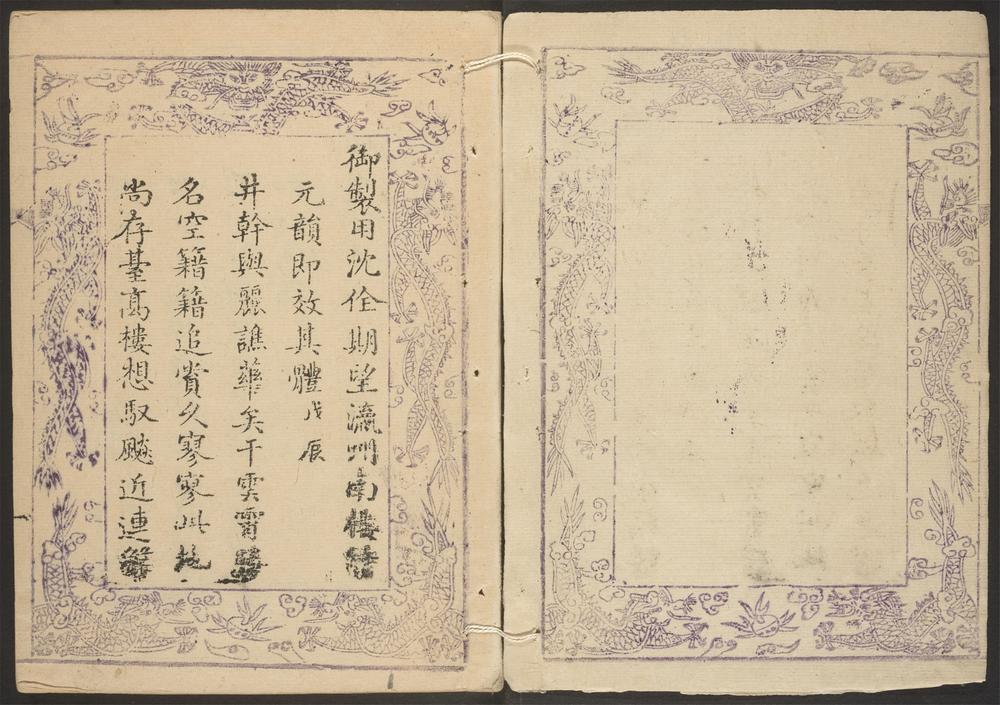 御製用沈佺期望瀛州南樓
元韻即效其體戊辰
井幹與麗譙華矣干雲霄
名空籍籍追賞久寥寥此
尚存臺高樓想馭飈近連